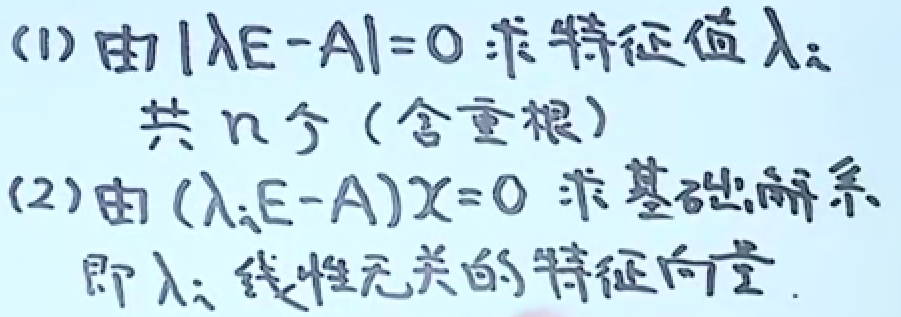 (1) 由|λE-A|=0 求特征值λᵢ
共n个(含重根)
(2) 由(λᵢE-A)x=0 求基础解系
即λᵢ线性无关的特征向量.